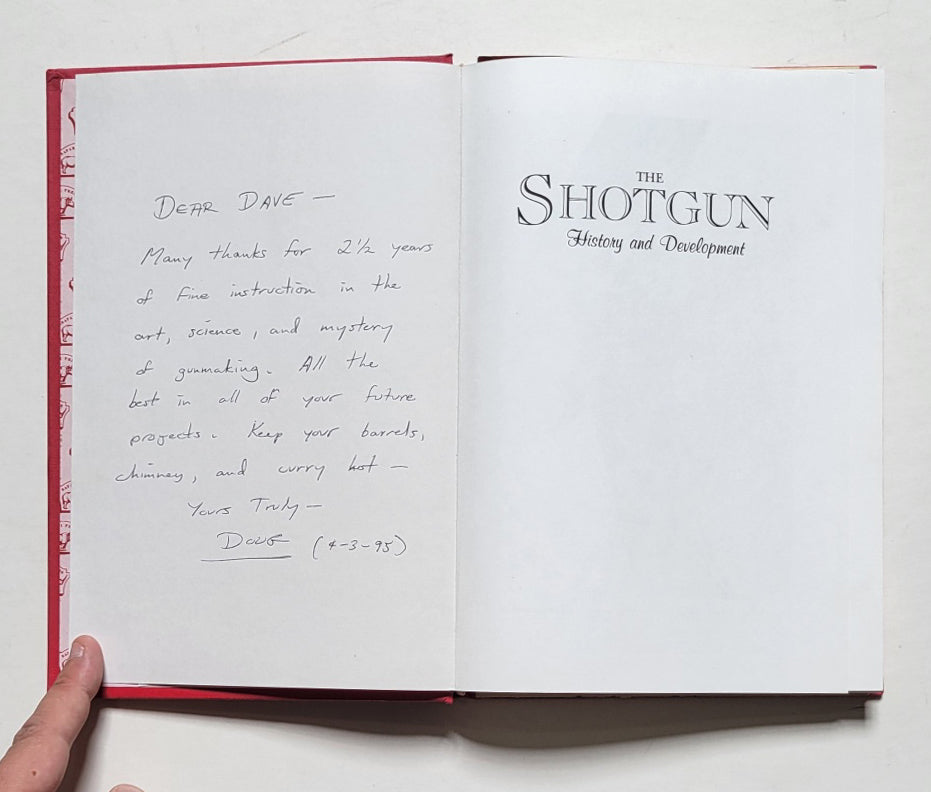 DEAR DAVE —
Many thanks for 2 1/2 years
of fine instruction in the
art, science, and mystery
of gunmaking. All the
best in all of your future
projects. Keep your barrels,
chimney, and curry hot —
Yours Truly —
DOUG (4-3-95)
THE
SHOTGUN
History and Development